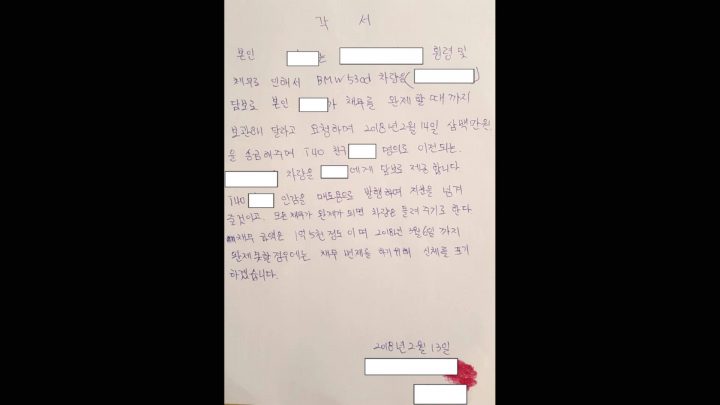 각 서
본인 는 횡령 및
채무로 인해서 BMW 530d 차량을 ( )
담보로 본인 가 채무를 완제할 때까지
보관해 달라고 요청하며 2018년 2월 14일 삼백만원
을 송금해주며 친구 명의로 이전되는
차량을 에게 담보로 제공합니다
인감을 매도용으로 발행하며 지분을 넘겨
줄것이고. 모든 채무가 완제가 되면 차량은 돌려주기로 한다
채무 금액은 1억 5천 정도 이며 2018년 6일 까지
완제 못할 경우에는 채무 변제를 하기위해 신체를 포기
하겠습니다.
2018년 2월 13일